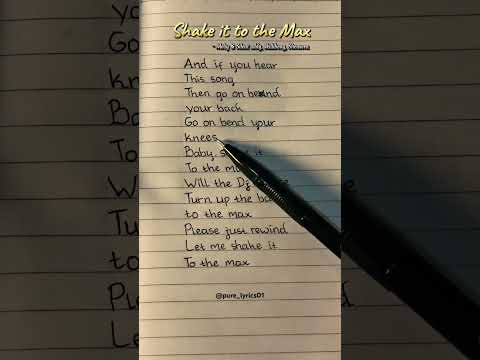 Shake it to the Max
And if you hear
This song
Then go on bend
your back
Go on bend your
knees
Baby, it
To the
Will the Dj
Turn up the
to the max
Please just rewind
Let me shake it
To the max
@pure_lyrics01